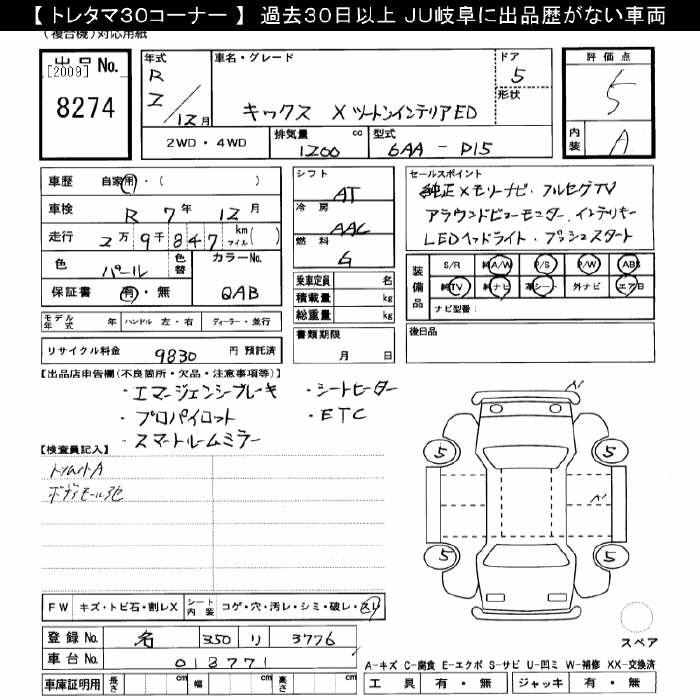 【 トレタマ30コーナー 】 過去30日以上 JU岐阜に出品歴がない車両
(複合機)対応用紙
出品 No.
[2009]
8274
年式
R
2/12月
車名・グレード
キックス X ツートンインテリアED
ドア
5
形状
評価点
5
内装
A
2WD・4WD
排気量 cc
1200
型式
6AA - P15
車歴 自家用・( )
車検 R 7年 12月
走行 2万9千847 km マイル( )
色 パール 色替
カラーNo.
QAB
保証書 有・無
モデル年式 年 ハンドル 左・右 ディーラー・並行
リサイクル料金 9830 円 預託済
シフト
AT
冷房
AAC
燃料
G
乗車定員 名
積載量 kg
総重量 kg
書類期限
月 日
セールスポイント
純正メモリーナビ・フルセグTV
アラウンドビューモニター・インテリキー
LEDヘッドライト・プッシュスタート
装備品
S/R 純A/W P/S P/W ABS
純TV 純ナビ 革シート 外ナビ エアB
ナビ型番:
後日品
【出品店申告欄(不良箇所・欠品・注意事項等)】
・エマージェンシーブレーキ ・シートヒーター
・プロパイロット ・ETC
・スマートルームミラー
【検査員記入】
ボディモール
FW キズ・トビ石・割レX シート内装 コゲ・穴・汚レ・シミ・破レ・スレ
登録 No. 名 350 リ 3776
車台 No. 013771
車庫証明用 長さ cm 幅 cm 高さ cm
5
5
5
5
スペア
A-キズ C-腐食 E-エクボ S-サビ U-凹ミ W-補修 XX-交換済
工具 有・無 ジャッキ 有・無